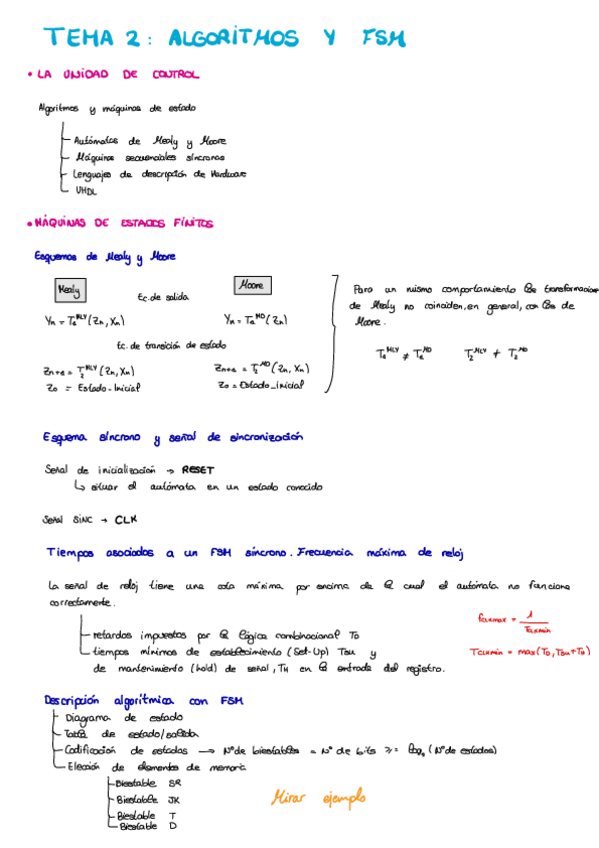 TEMA 2: ALGORITMOS Y FSM
• LA UNIDAD DE CONTROL
Algoritmos y máquinas de estado
Autómatas de Mealy y Moore
Máquinas secuenciales síncronas
Lenguajes de descripción de Hardware
VHDL
• MÁQUINAS DE ESTADOS FÍNITOS
Esquemas de Mealy y Moore
Mealy
Moore
Ec. de salida
Yn = T1^MLY (Zn, Xn)
Yn = T1^MO (Zn)
Ec. de transición de estado
Zn+1 = T2^MLY (Zn, Xn)
Zn+1 = T2^MO (Zn, Xn)
Z0 = Estado-Inicial
Z0 = Estado_inicial
Para un mismo comportamiento las transformaciones
de Mealy no coinciden, en general, con las de
Moore.
T1^MLY ≠ T1^MO T2^MLY ≠ T2^MO
Esquema síncrono y señal de sincronización
Señal de inicialización → RESET
↳ situar el autómata en un estado conocido
Señal SINC → CLK
Tiempos asociados a un FSM síncrono. Frecuencia máxima de reloj
La señal de reloj tiene una cota máxima por encima de la cual el autómata no funciona
correctamente.
retardos impuestos por la lógica combinacional TD
tiempos mínimos de establecimiento (Set-Up) Tsu y
de mantenimiento (hold) de señal, TH en la entrada del registro.
fclkmax = 1 / Tclkmin
Tclkmin = max(TD, Tsu+TH)
Descripción algorítmica con FSM
Diagrama de estado
Tabla de estado/salida
Codificación de estados → Nº de biestables = Nº de bits >= log2 (Nº de estados)
Elección de elementos de memoria
Biestable SR
Biestable JK
Biestable T
Biestable D
Mirar ejemplo